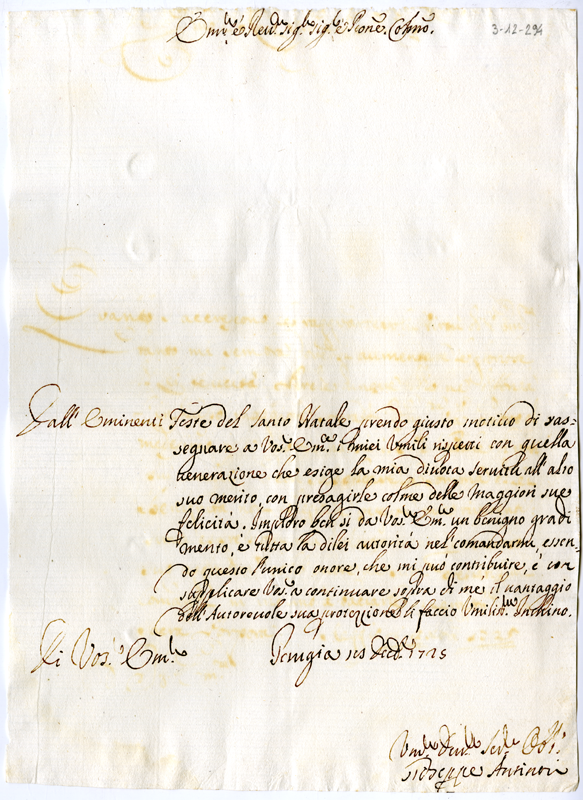 Em.mo e Rev.mo Sig.r Sig.r e Prone. Colmo.
3-12-294
Dall' Eminenti Feste del Santo Natale prendo giusto motivo di ras=
segnare a Vos.a Em.a i miei Umili rispetti con quella
venerazione che esige la mia divota servitù all'alto
suo merito, con presagirle colme delle Maggiori sue
felicità. Imploro ben si da Vos.a Em.a un benigno gradi
mento, è tutta la dilei autorità nel comandarmi, essen-
do questo l'unico onore, che mi può contribuire, è con
supplicare Vos.a a continuare sopra di mè il vantaggio
dell'Autorevole sua protezzione li faccio Umilis.mo Inchino.
Di Vos.a Em.a
Perugia Xbre 1725
Um.mo Dev.mo Ser.re Obb.
Gioseppe Antinori